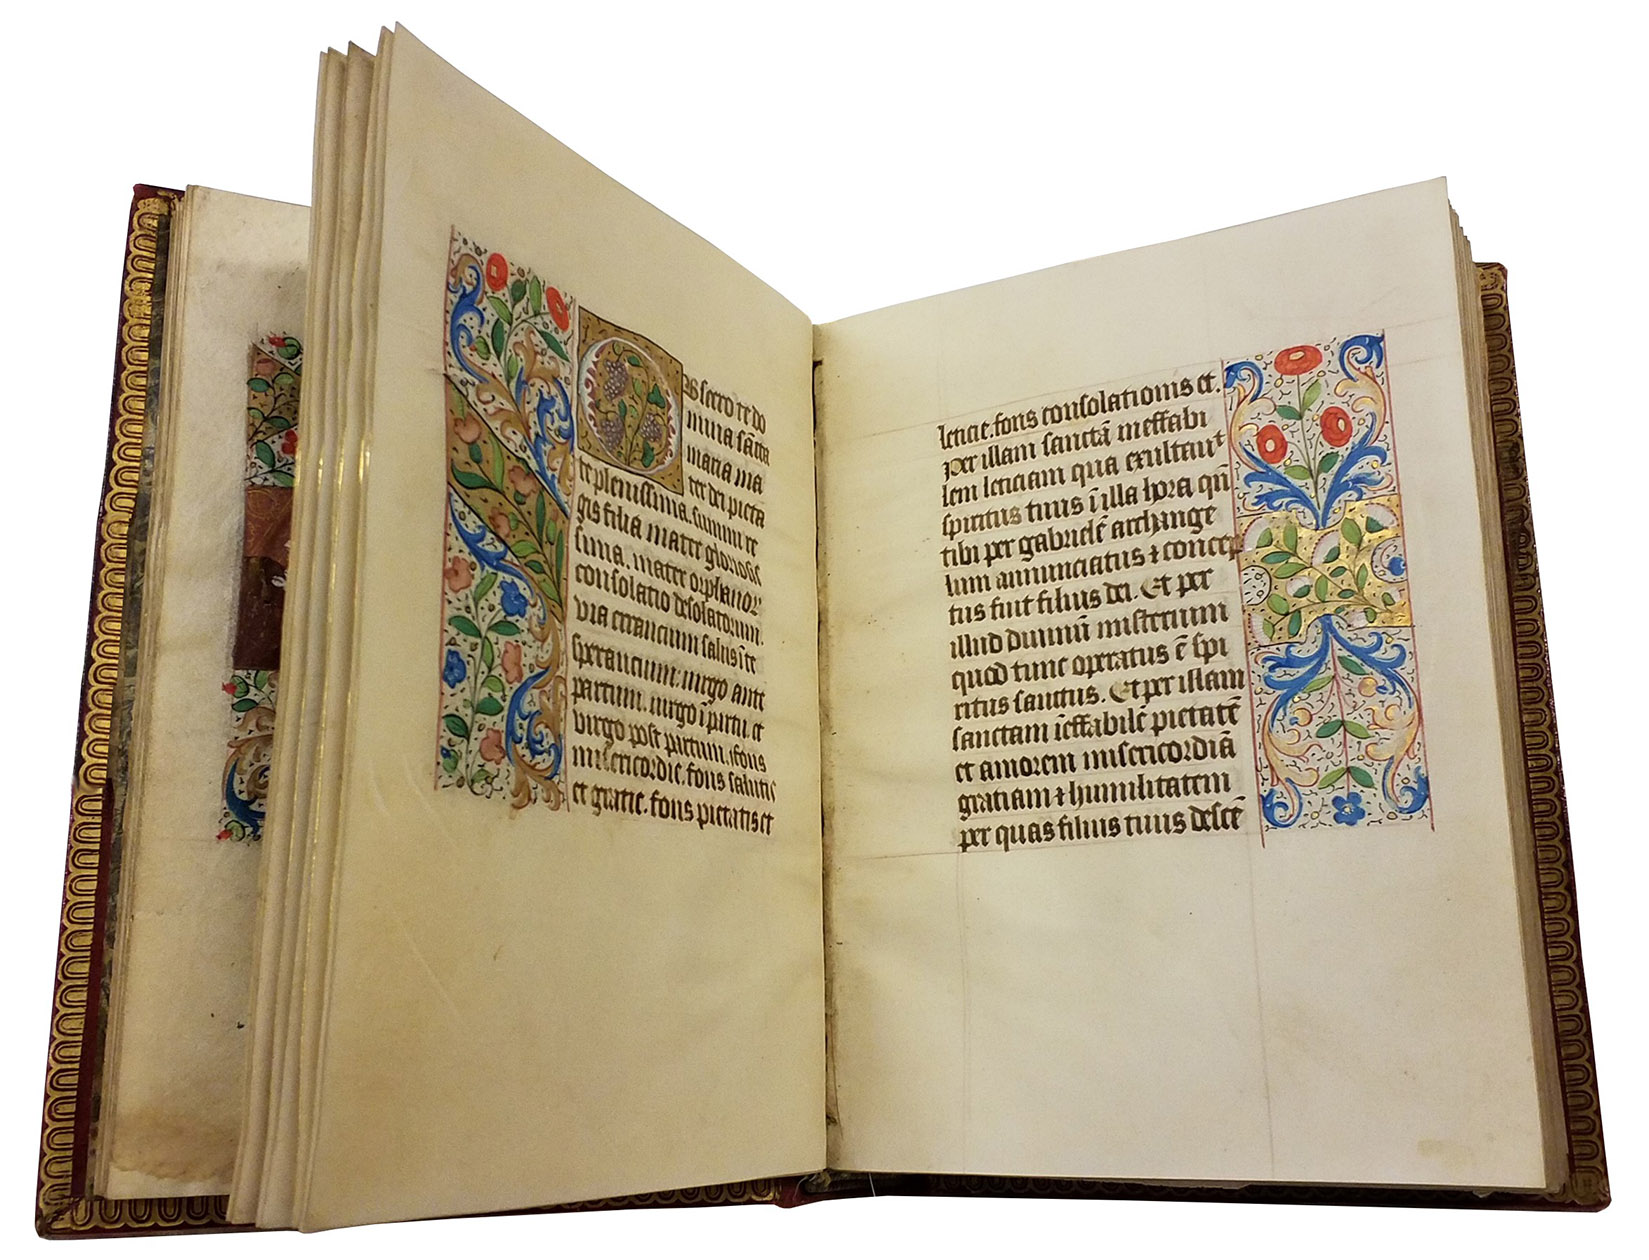 Obsecro te do
mina sācta
maria ma
ter dei pieta
te plenissima. summi re
gis filia mater gloriosis
sima. mater orphanor
consolatio desolatorum.
via errancium salus ī te
sperancium. virgo ante
partum. virgo ī partu. et
virgo post partum. fons
misericordie. fons salutis
et gratie. fons pietatis et
leticie. fons consolationis et.
Per illam sanctā ineffabi
lem leticiam qua exultauit
spiritus tuus ī illa hora qn̄
tibi per gabrielē archange
lum annunciatus ⁊ concep
tus fuit filius dei. Et per
illud diuinū misterium
quod tunc operatus ē spi
ritus sanctus. Et per illam
sanctam īeffabilē pietatē
et amorem misericordiā
gratiam ⁊ humilitatem
per quas filius tuus descē